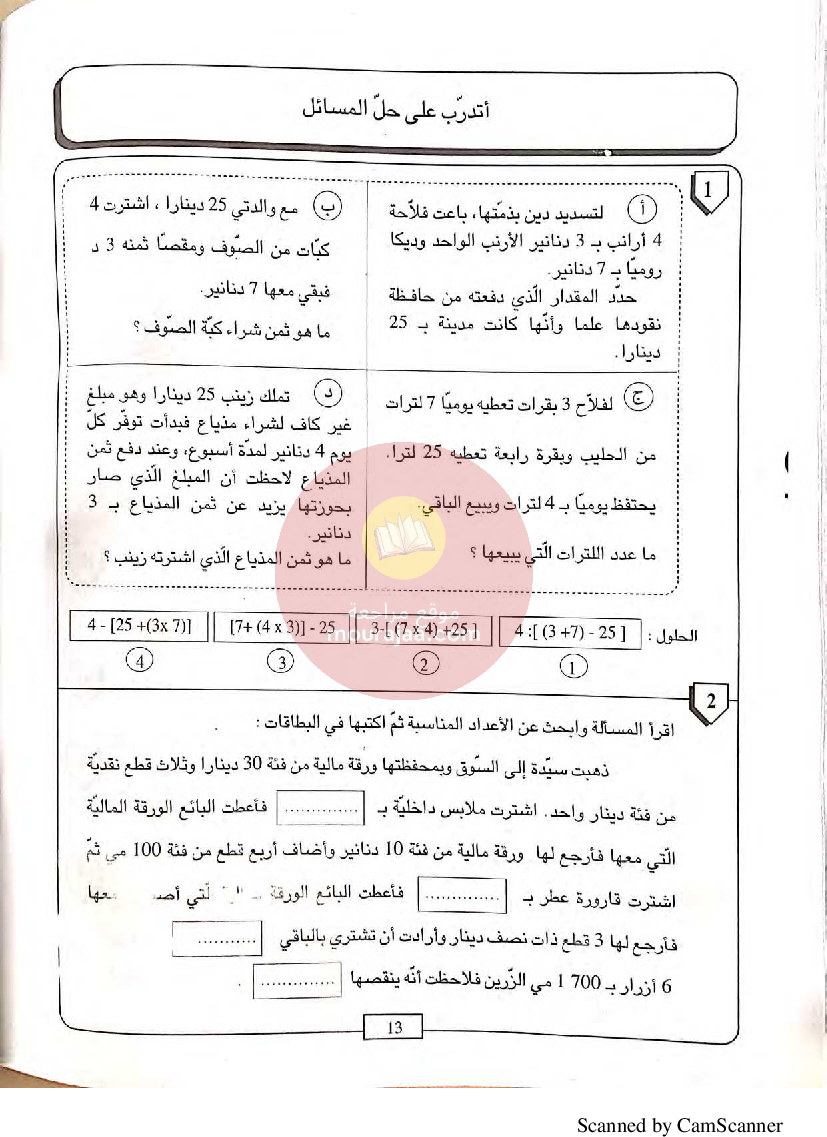 أتدرّب على حلّ المسائل
1
أ لتسديد دين بذمّتها، باعت فلاّحة
4 أرانب بـ 3 دنانير الأرنب الواحد وديكا
روميّا بـ 7 دنانير.
حدّد المقدار الّذي دفعته من حافظة
نقودها علما وأنّها كانت مدينة بـ 25
دينارا.
ب مع والدتي 25 دينارا ، اشترت 4
كبّات من الصّوف ومقصّا ثمنه 3 د
فبقي معها 7 دنانير.
ما هو ثمن شراء كبّة الصّوف ؟
ج لفلاّح 3 بقرات تعطيه يوميّا 7 لترات
من الحليب وبقرة رابعة تعطيه 25 لترا.
يحتفظ يوميّا بـ 4 لترات ويبيع الباقي.
ما عدد اللترات الّتي يبيعها ؟
د تملك زينب 25 دينارا وهو مبلغ
غير كاف لشراء مذياع فبدأت توفّر كلّ
يوم 4 دنانير لمدّة أسبوع، وعند دفع ثمن
المذياع لاحظت أن المبلغ الّذي صار
بحوزتها يزيد عن ثمن المذياع بـ 3
دنانير.
ما هو ثمن المذياع الّذي اشترته زينب ؟
الحلول :
4 :[ (3 +7) - 25 ]
3-[ (7 x 4) +25 ]
[7+ (4 x 3)] - 25
4 - [25 +(3x 7)]
1
2
3
4
موقع مراجعة
mourajaa.com
2
اقرأ المسألة وابحث عن الأعداد المناسبة ثمّ اكتبها في البطاقات :
ذهبت سيّدة إلى السّوق وبمحفظتها ورقة مالية من فئة 30 دينارا وثلاث قطع نقديّة
من فئة دينار واحد. اشترت ملابس داخليّة بـ .............. فأعطت البائع الورقة الماليّة
الّتي معها فأرجع لها ورقة مالية من فئة 10 دنانير وأضاف أربع قطع من فئة 100 مي ثمّ
اشترت قارورة عطر بـ .............. فأعطت البائع الورقة
فأرجع لها 3 قطع ذات نصف دينار وأرادت أن تشتري بالباقي ...........
6 أزرار بـ 700 1 مي الزّرين فلاحظت أنّه ينقصها .............. .
13
Scanned by CamScanner